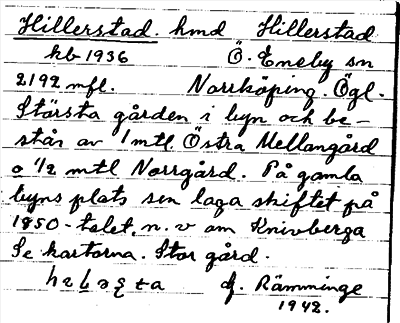 Hillerstad. hmd Hillerstad
kb 1936 Ö. Eneby sn
2192 mfl. Norrköping. Ögl.
Största gården i byn och be-
står av 1 mtl. Östra Mellangård
o 1/2 mtl Norrgård. På gamla
byns plats sen laga skiftet på
1850-talet. n. v om Knivberga
Se kartorna. Stor gård.
Rämminge
1942.